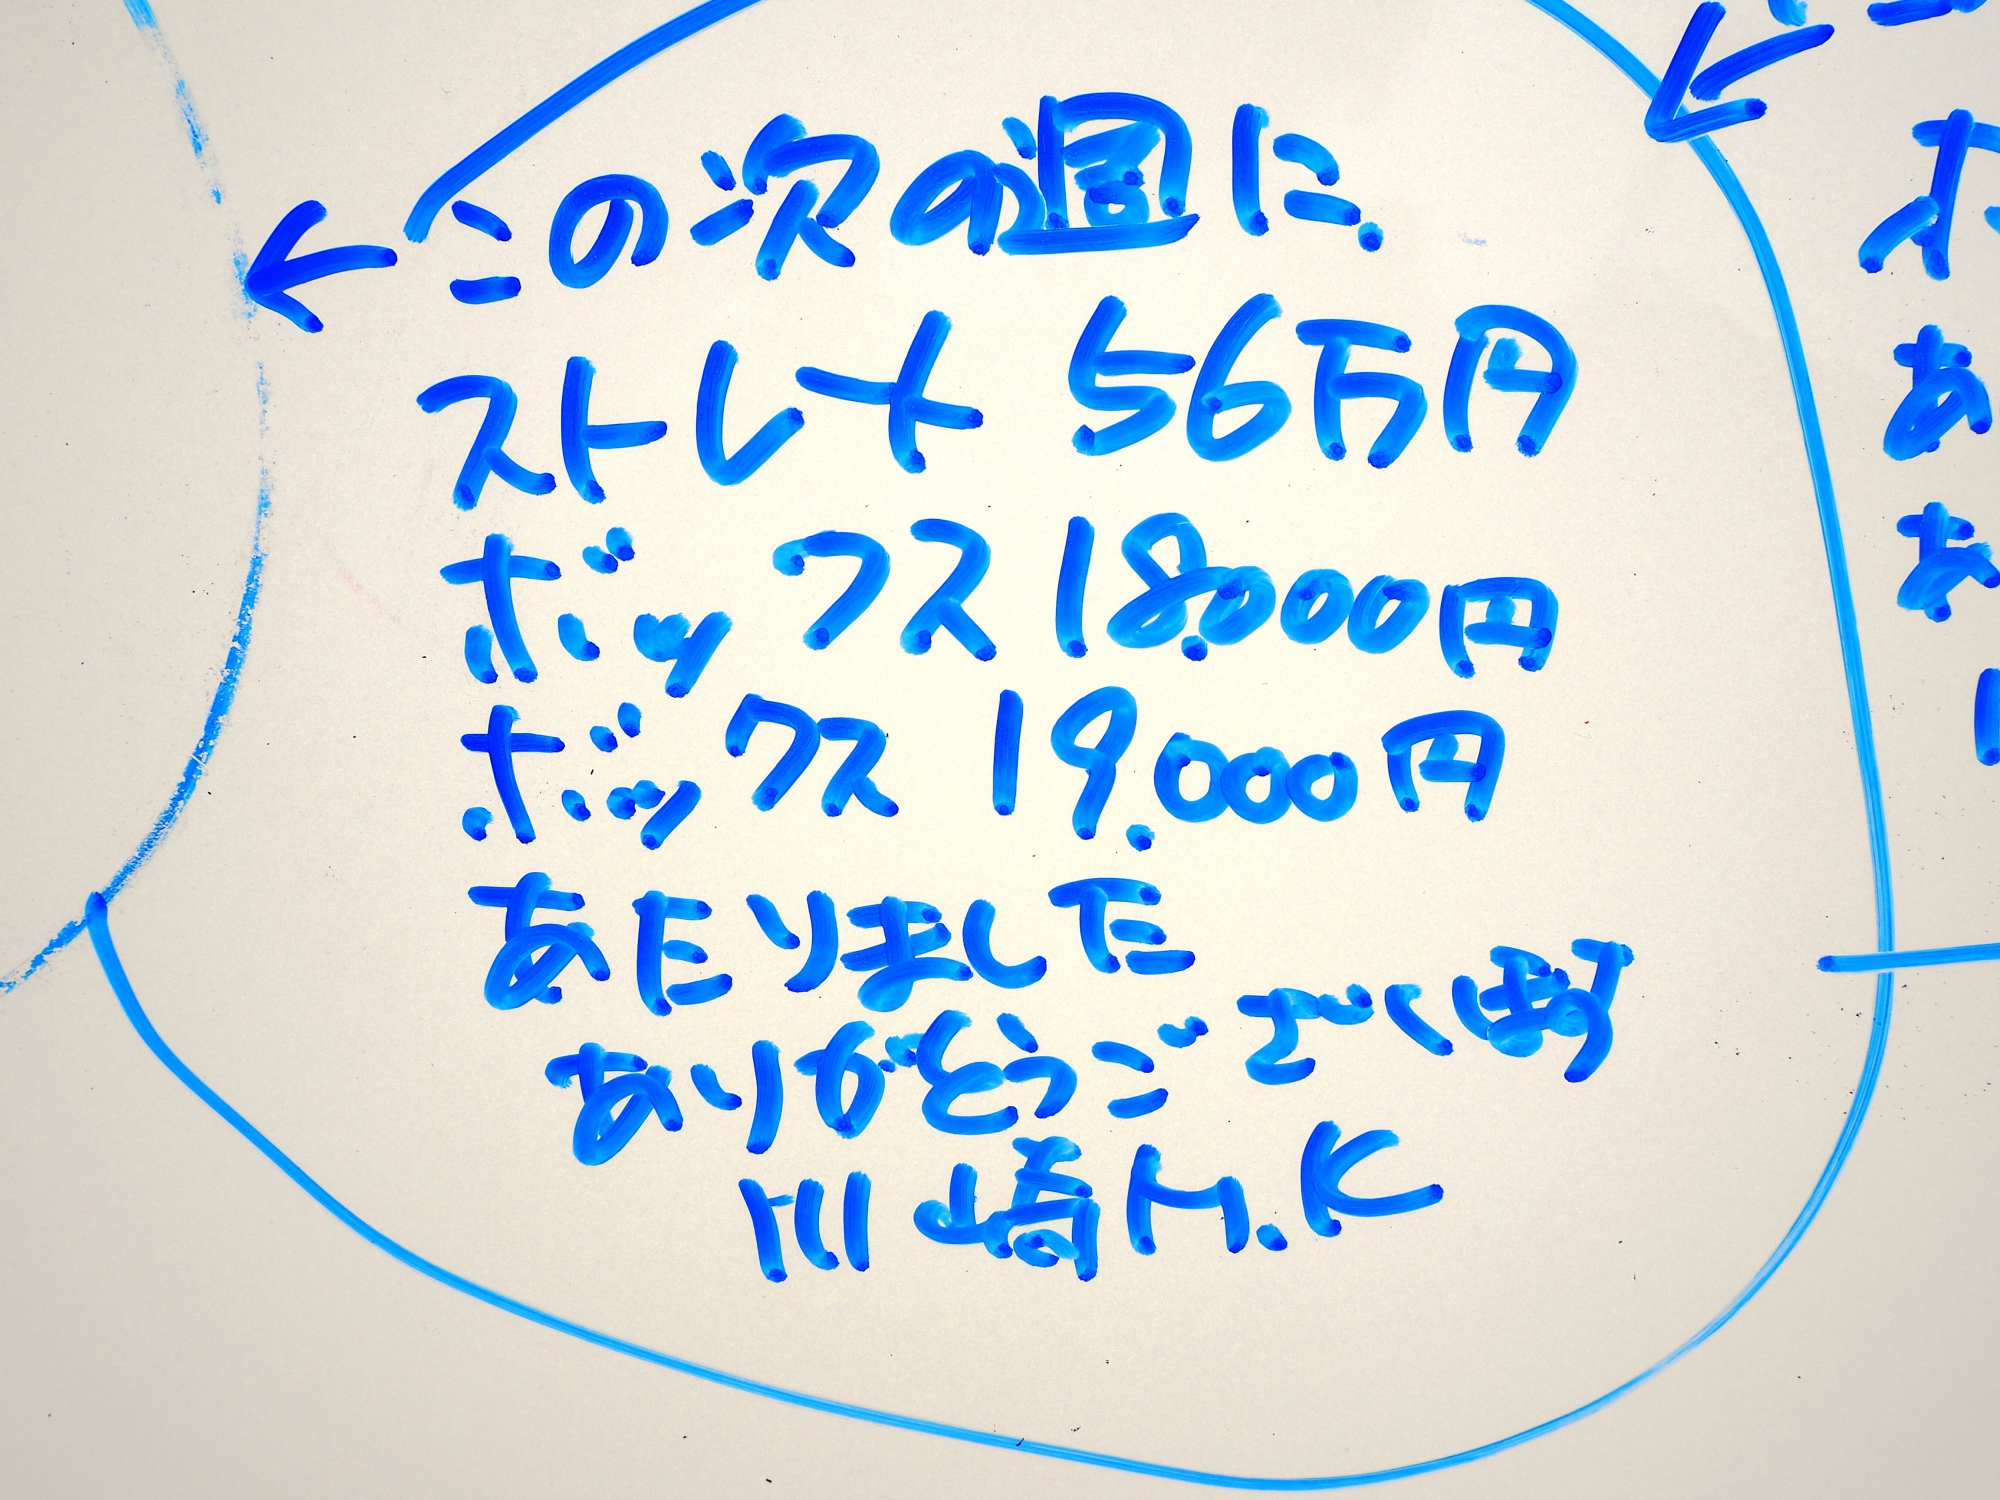 この次の週に.
ストレート 56万円
ボックス 18.000円
ボックス 19.000円
あたりました
ありがとうございます
川崎 M.K